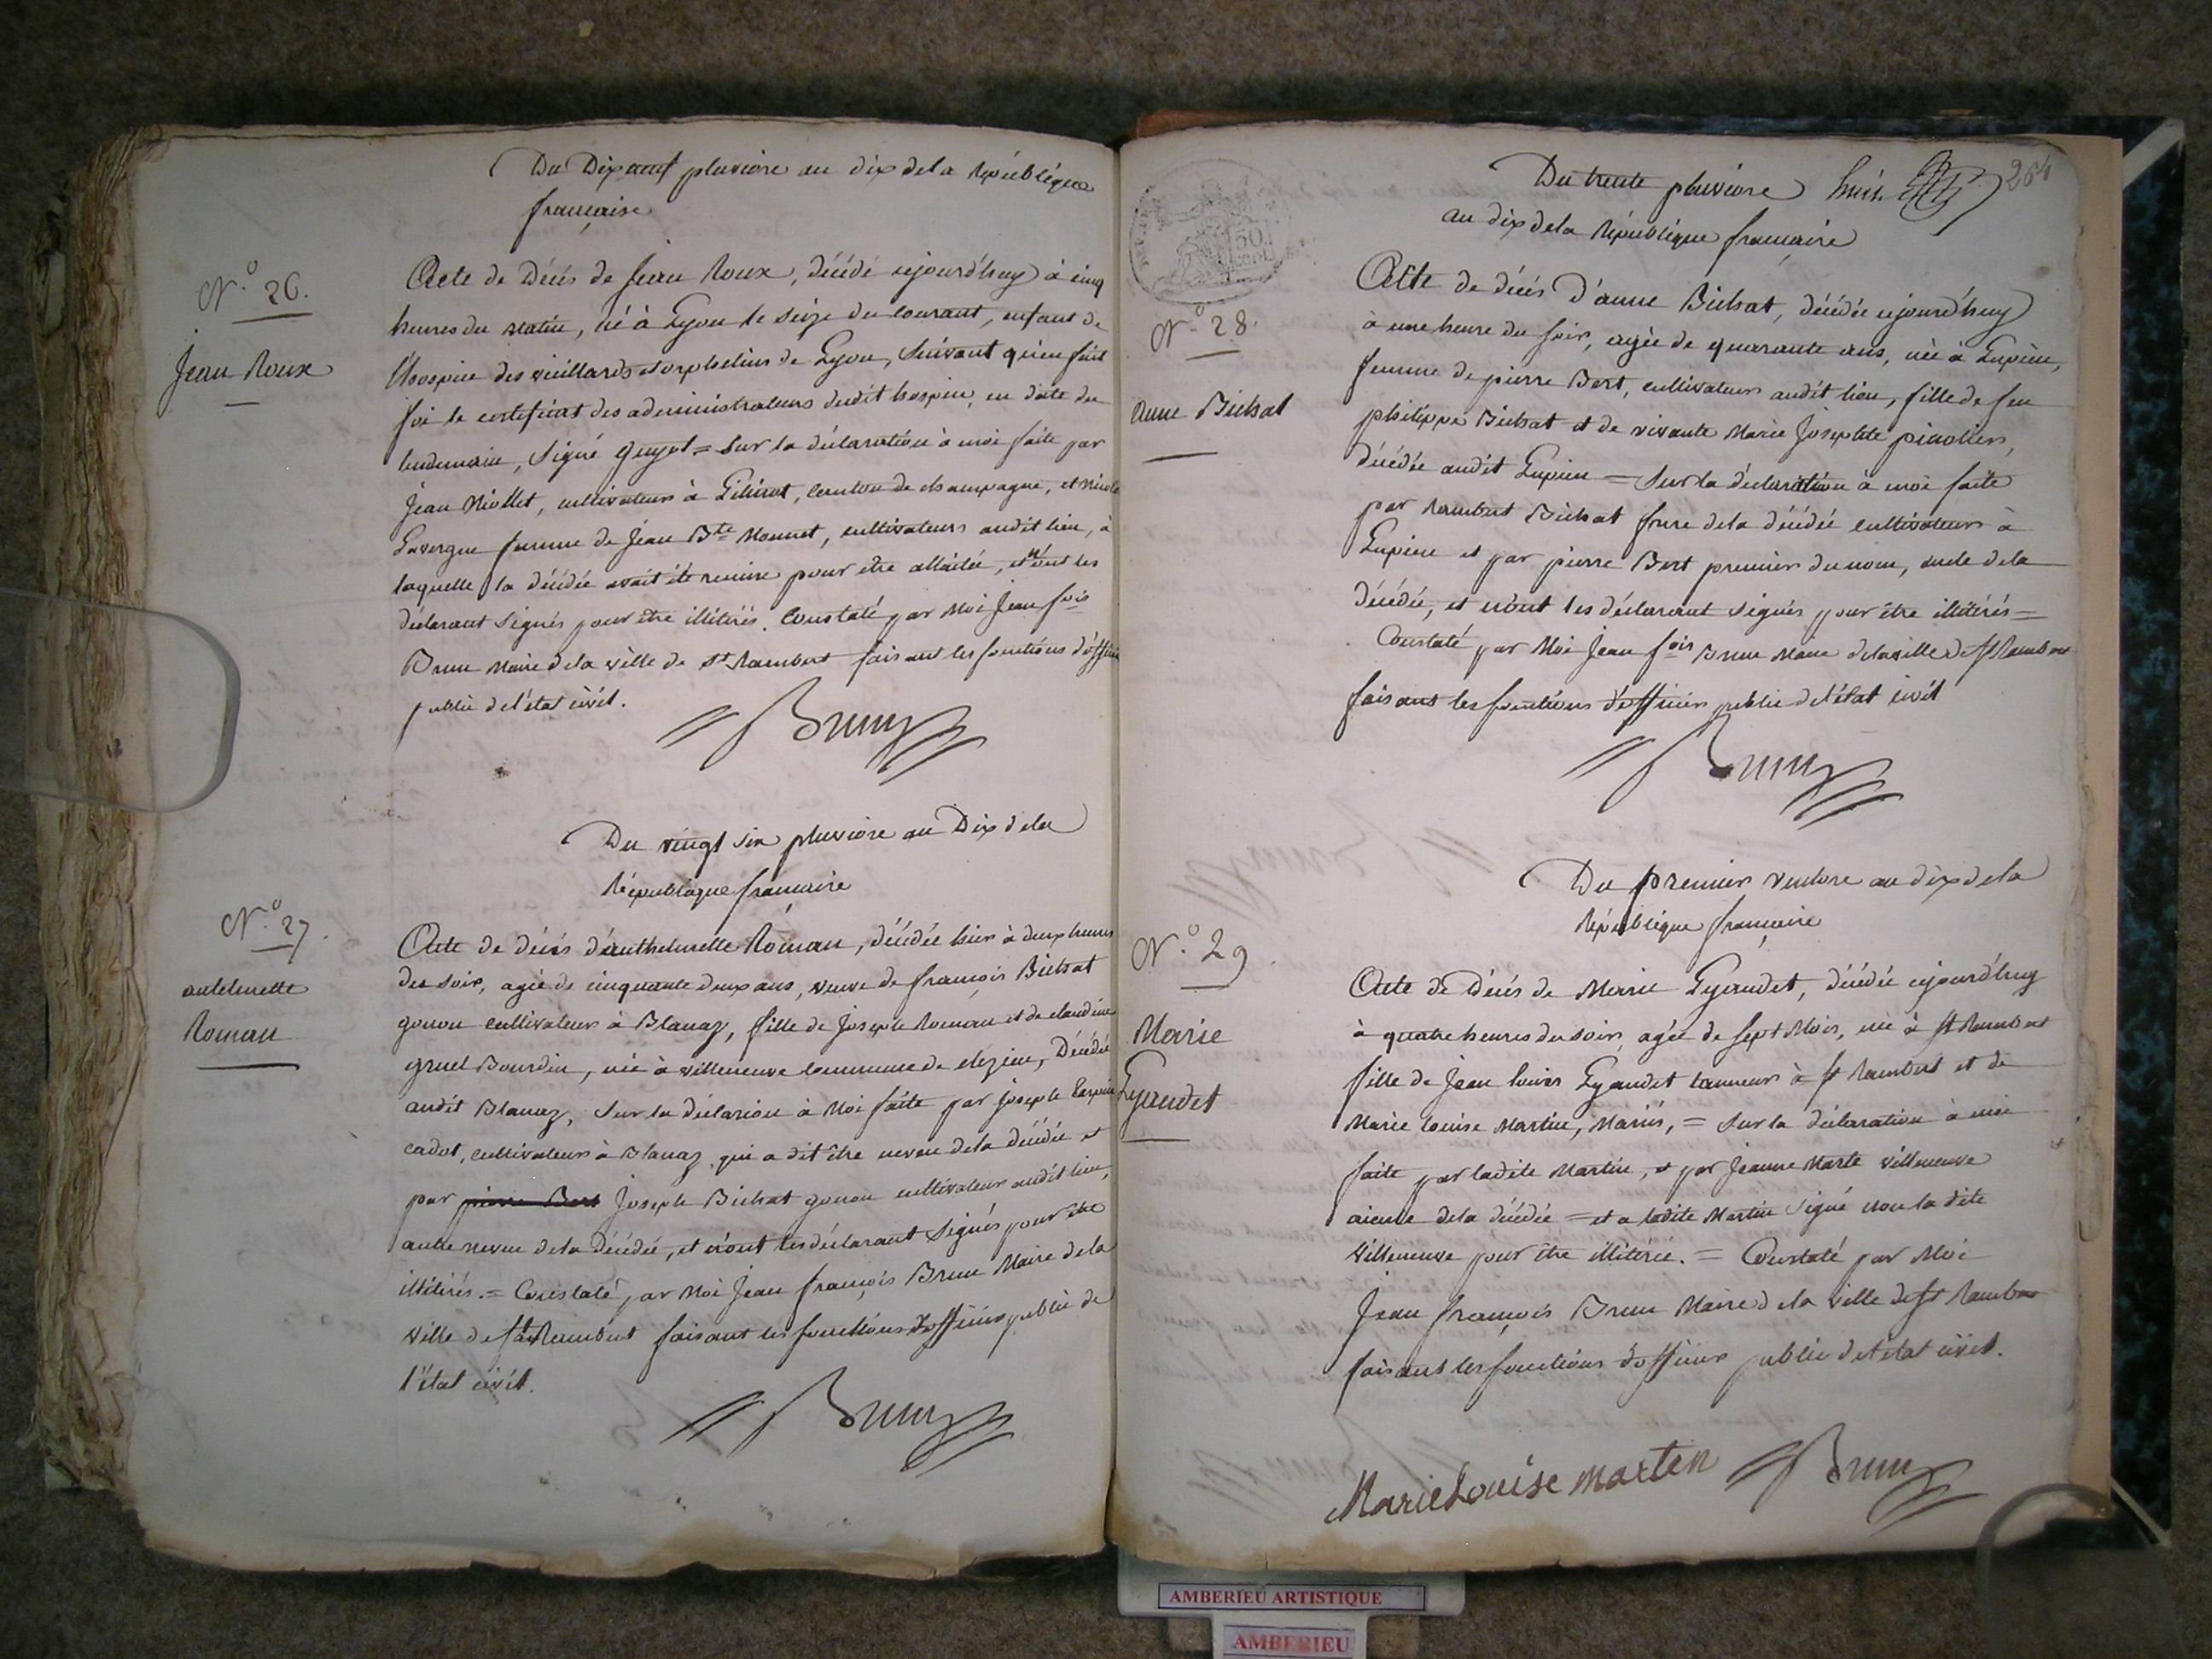 Du Dix neuf pluviose an dix de la République
française
N.º 26.
Jean Roux
Acte de Décés de Jean Roux, décédé cejourd'huy à cinq
heures du matin, né à Lyon le seize du courant, enfant de
l'hospice des vieillards et orphelins de Lyon, suivant qu'en fait
foi le certificat des administrateurs dudit hospice, en date du
lendemain, signé guyot = sur la déclaration à moi faite par
Jean Niollet, cultivateur à canton de champagne, et nicole
Lavergne femme de Jean Bte Monnet, cultivateur audit lieu, à
laquelle la décédée avait été remise pour être allaitée, et n'ont les
déclarant signés pour être illitérés. Constaté par Moi Jean fois
Brun Maire de la ville de St Rambert faisant les fonctions d'officier
public de l'état civil.
Brun
Du vingt six pluviose an Dix de la
République française
N.º 27.
antelmette
Roman
Acte de décés d'anthelmette Roman, décédée hier à deux heures
du soir, agée de cinquante deux ans, veuve de françois Bichat
gonon cultivateur à Blanaz, fille de Joseph Roman et de claudine
gruel Bourdin, née à villeneuve commune de Décédée
audit Blanaz, sur la déclarion à Moi faite par Joseph
cadot, cultivateur à Blanaz qui a dit être neveu de la décédée et
par pierre Bert Joseph Bichat gonon cultivateur audit lieu,
autre neveu de la Décédée, et n'ont les déclarant signés pour être
illitérés. = Constaté par Moi Jean françois Brun Maire de la
ville de St Rambert faisant les fonctions d'officier public de
l'état civil.
Brun
264
Du trente pluviose
an dix de la République française
N.º 28.
anne Bichat
Acte de décés d'anne Bichat, décédée cejourd'huy
à une heure du soir, agée de quarante ans, née à Lupieu,
femme de pierre Bert, cultivateur audit lieu, fille de feu
philippe Bichat et de vivante Marie Josephte pinollier,
décédée audit Lupieu = Sur la déclaration à moi faite
par Rambert Bichat frere de la décédée cultivateur à
Lupieu et par pierre Bert premier du nom, oncle de la
décédée, et n'ont les déclarant signés pour être illitérés =
Constaté par Moi Jean fois Brun Maire de la ville de St Rambert
faisant les fonctions d'officier public de l'état civil
Brun
Du premier ventose an dix de la
République française
N.º 29.
Marie
Lyaudet
Acte de Décés de Marie Lyaudet, décédée cejourd'huy
à quatre heures du soir, agée de sept Mois, née à St Rambert
fille de Jean louis Lyaudet tanneur à St Rambert et de
Marie Louise Martin, Mariés, = sur la déclaration à moi
faite par ladite Martin, et par Jeanne Marte villeneuve
aieule de la décédée = et a ladite Martin signé non la dite
villeneuve pour être illitérée. = Constaté par Moi
Jean françois Brun Maire de la ville de St Rambert
faisant les fonctions d'officier public de l'état civil.
Marie Louise marten Brun
AMBERIEU ARTISTIQUE
AMBERIEU